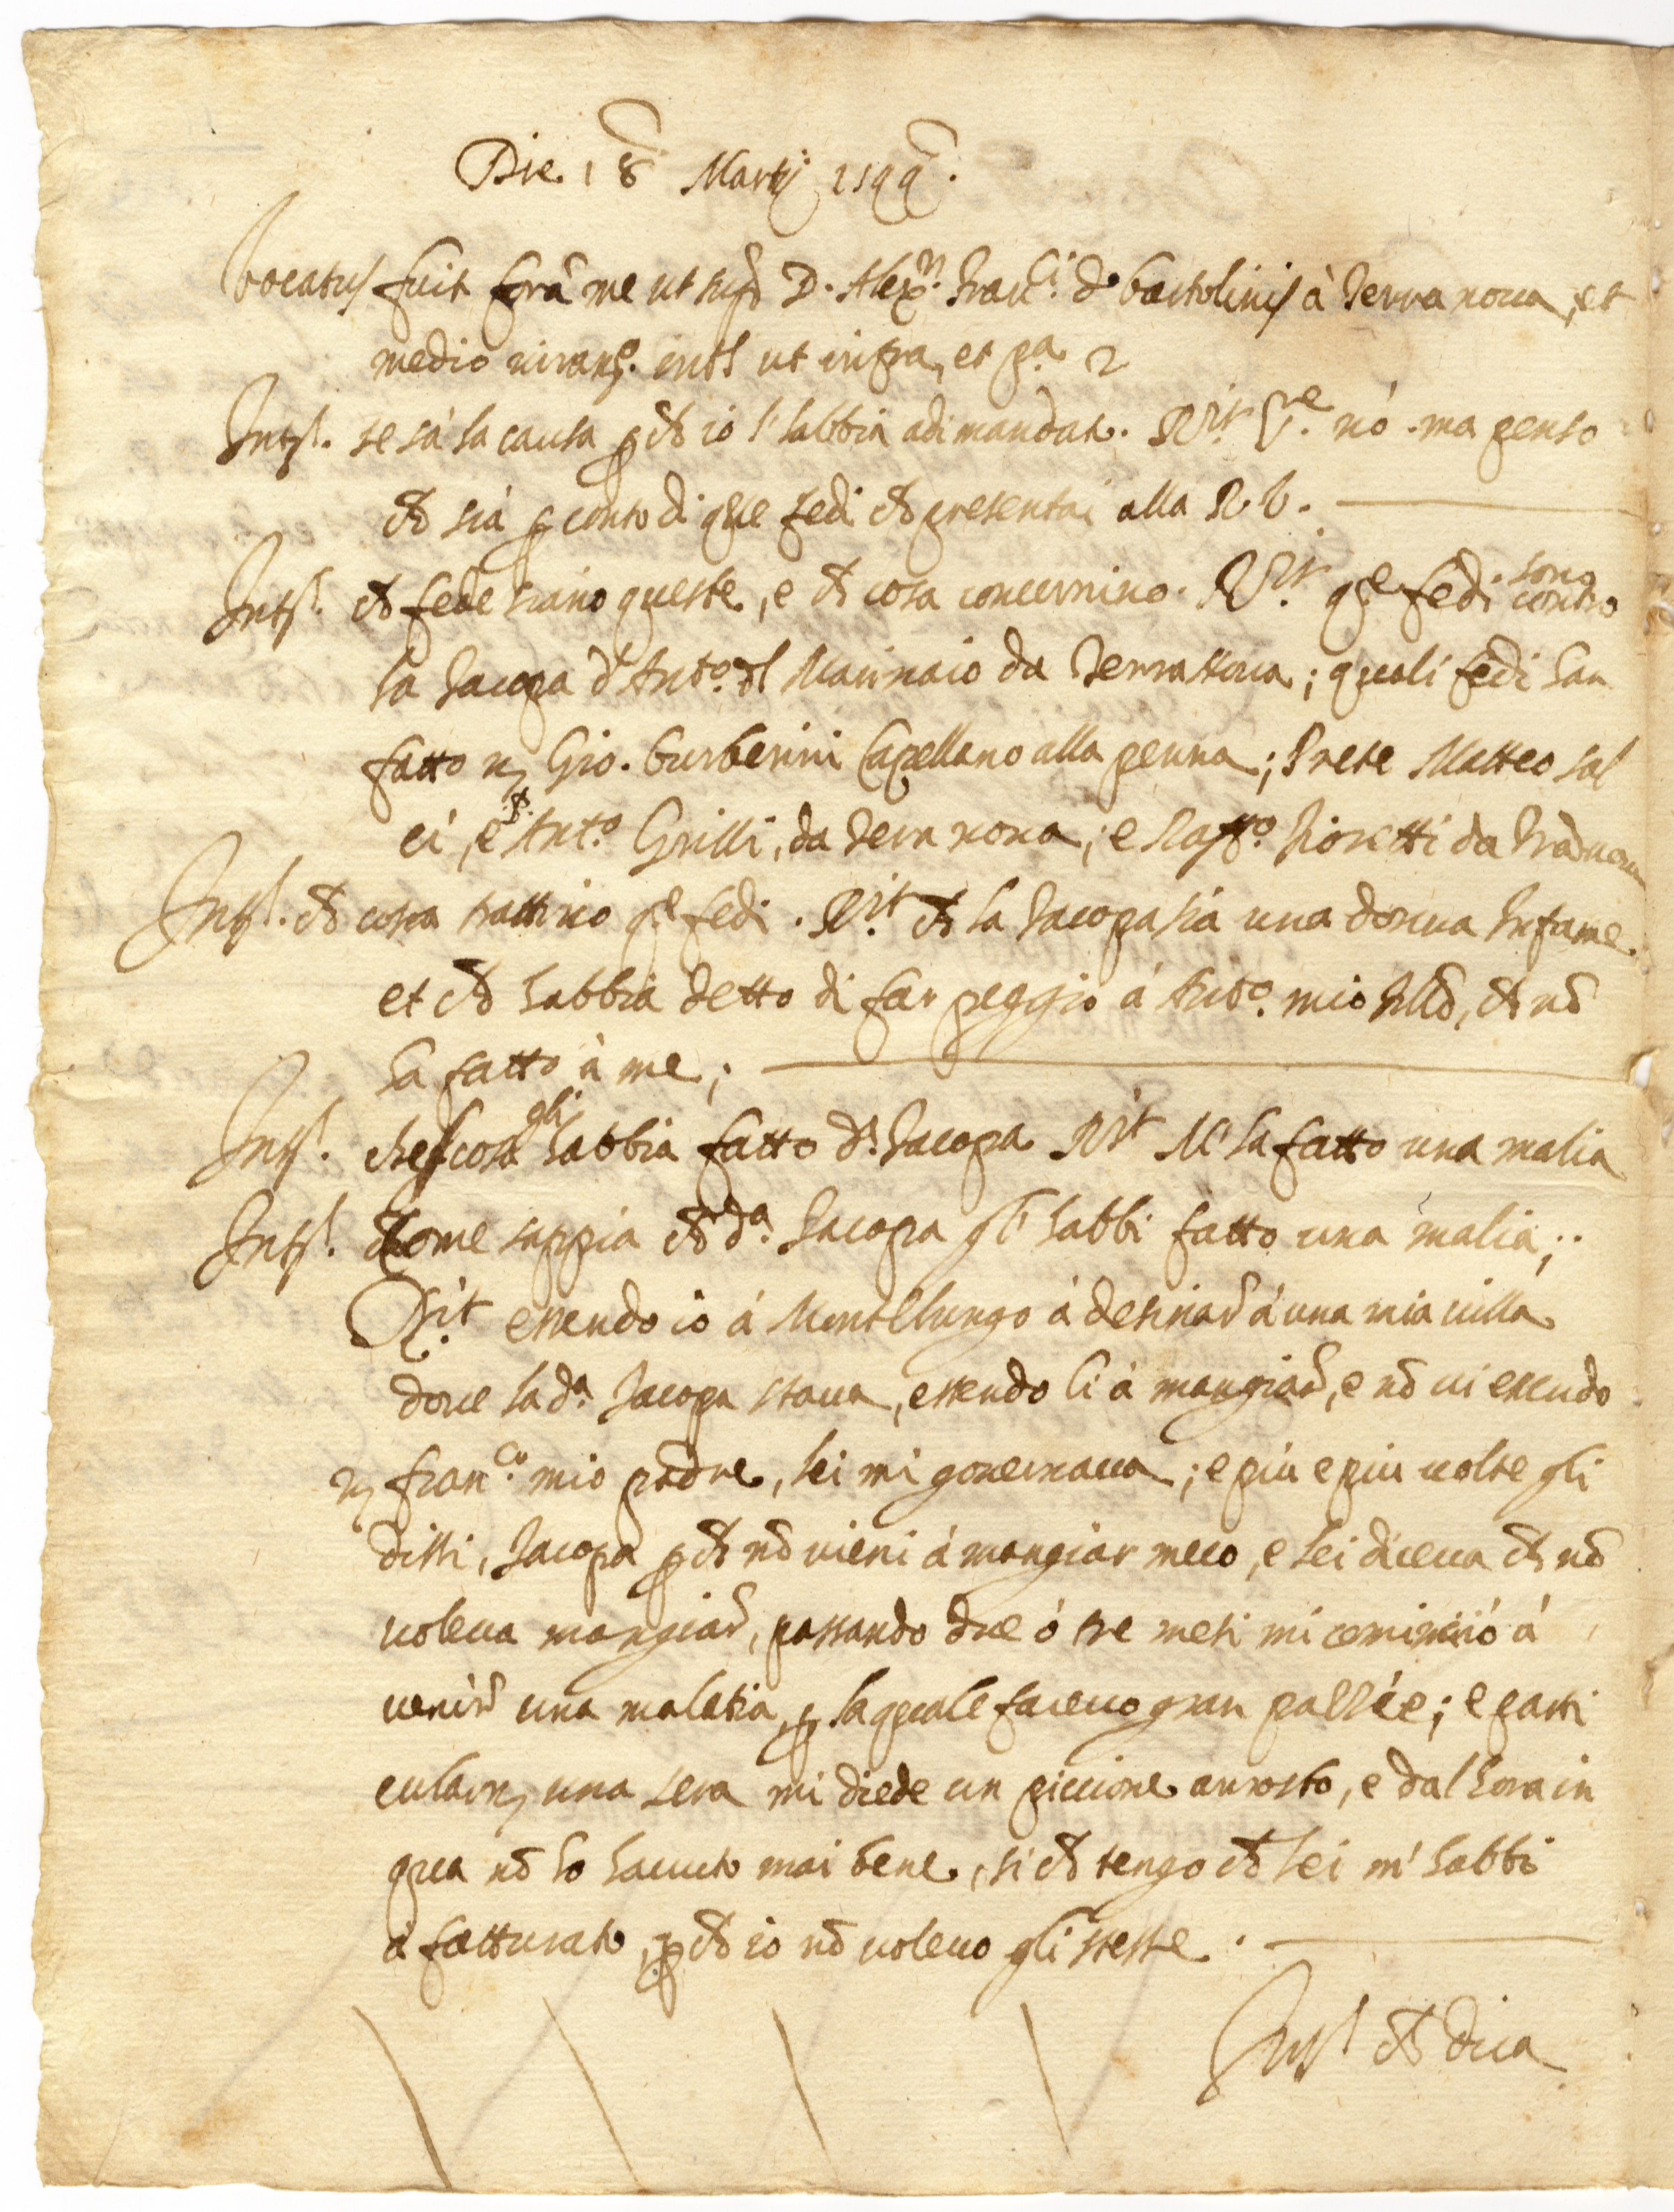 Die. 18 Martij 1599.
Vocatus fuit corã me ut supª D. Alexr. Franci. de Bartolinis à Terra noua, et
medio iuramto. ints ut infra, et pª. 2
Intst. se sà la causa p ch̃ io l'habbia adimandato. Rit Sre. nò. ma penso
ch̃ sia p conto di qlle fedi ch̃ presentai alla R. V.
Intst. ch̃ fede siano queste, e ch̃ cosa concernino. Rit qte fedi sono contro
la Jacopa d'Anto. dl Marinaio da Terranoua; quali fedi han
fatto Gio. Burberini Capellano alla penna; Prete Matteo sal
ci, e Pe. Anto. Grilli, da Terra noua; e Raffo. Fioretti da
Intst. ch̃ cosa trattino qte fedi. Rit ch̃ la Jacopa sia una donna Infame.
et ch̃ habbia detto di far peggio à Anto. mio fllo, ch̃ nõ
ha fatto à me;
Intst. che cosa gli habbia fatto dª. Jacopa Rit M'ha fatto una malia
Intst. Come sappia ch̃ dª. Jacopa gl'habbi fatto una malia;.
Rit essendo io à Montelungo à desinar̃ à una mia uilla
doue la dª. Jacopa staua, essendo li à mangiar̃, e nõ ui essendo
franco. mio padre, lei mi gouernaua; e più e piu uolte gli
dissi, Jacopa p ch̃ nõ uieni à mangiar meco, e lei diceua ch̃ nõ
uoleua mangiar̃, passando due ò tre mesi mi cominciò à
uenir̃ una malatia, p la quale faceuo gran pazzie; e parti
cularm una sera mi diede un piccione arrosto, e dal hora in
qua nõ ho hauuto mai bene, si ch̃ tengo ch̃ lei m'habbi
affatturato, p ch̃ io nõ uoleuo gli stesse.
Intst ch̃ dica